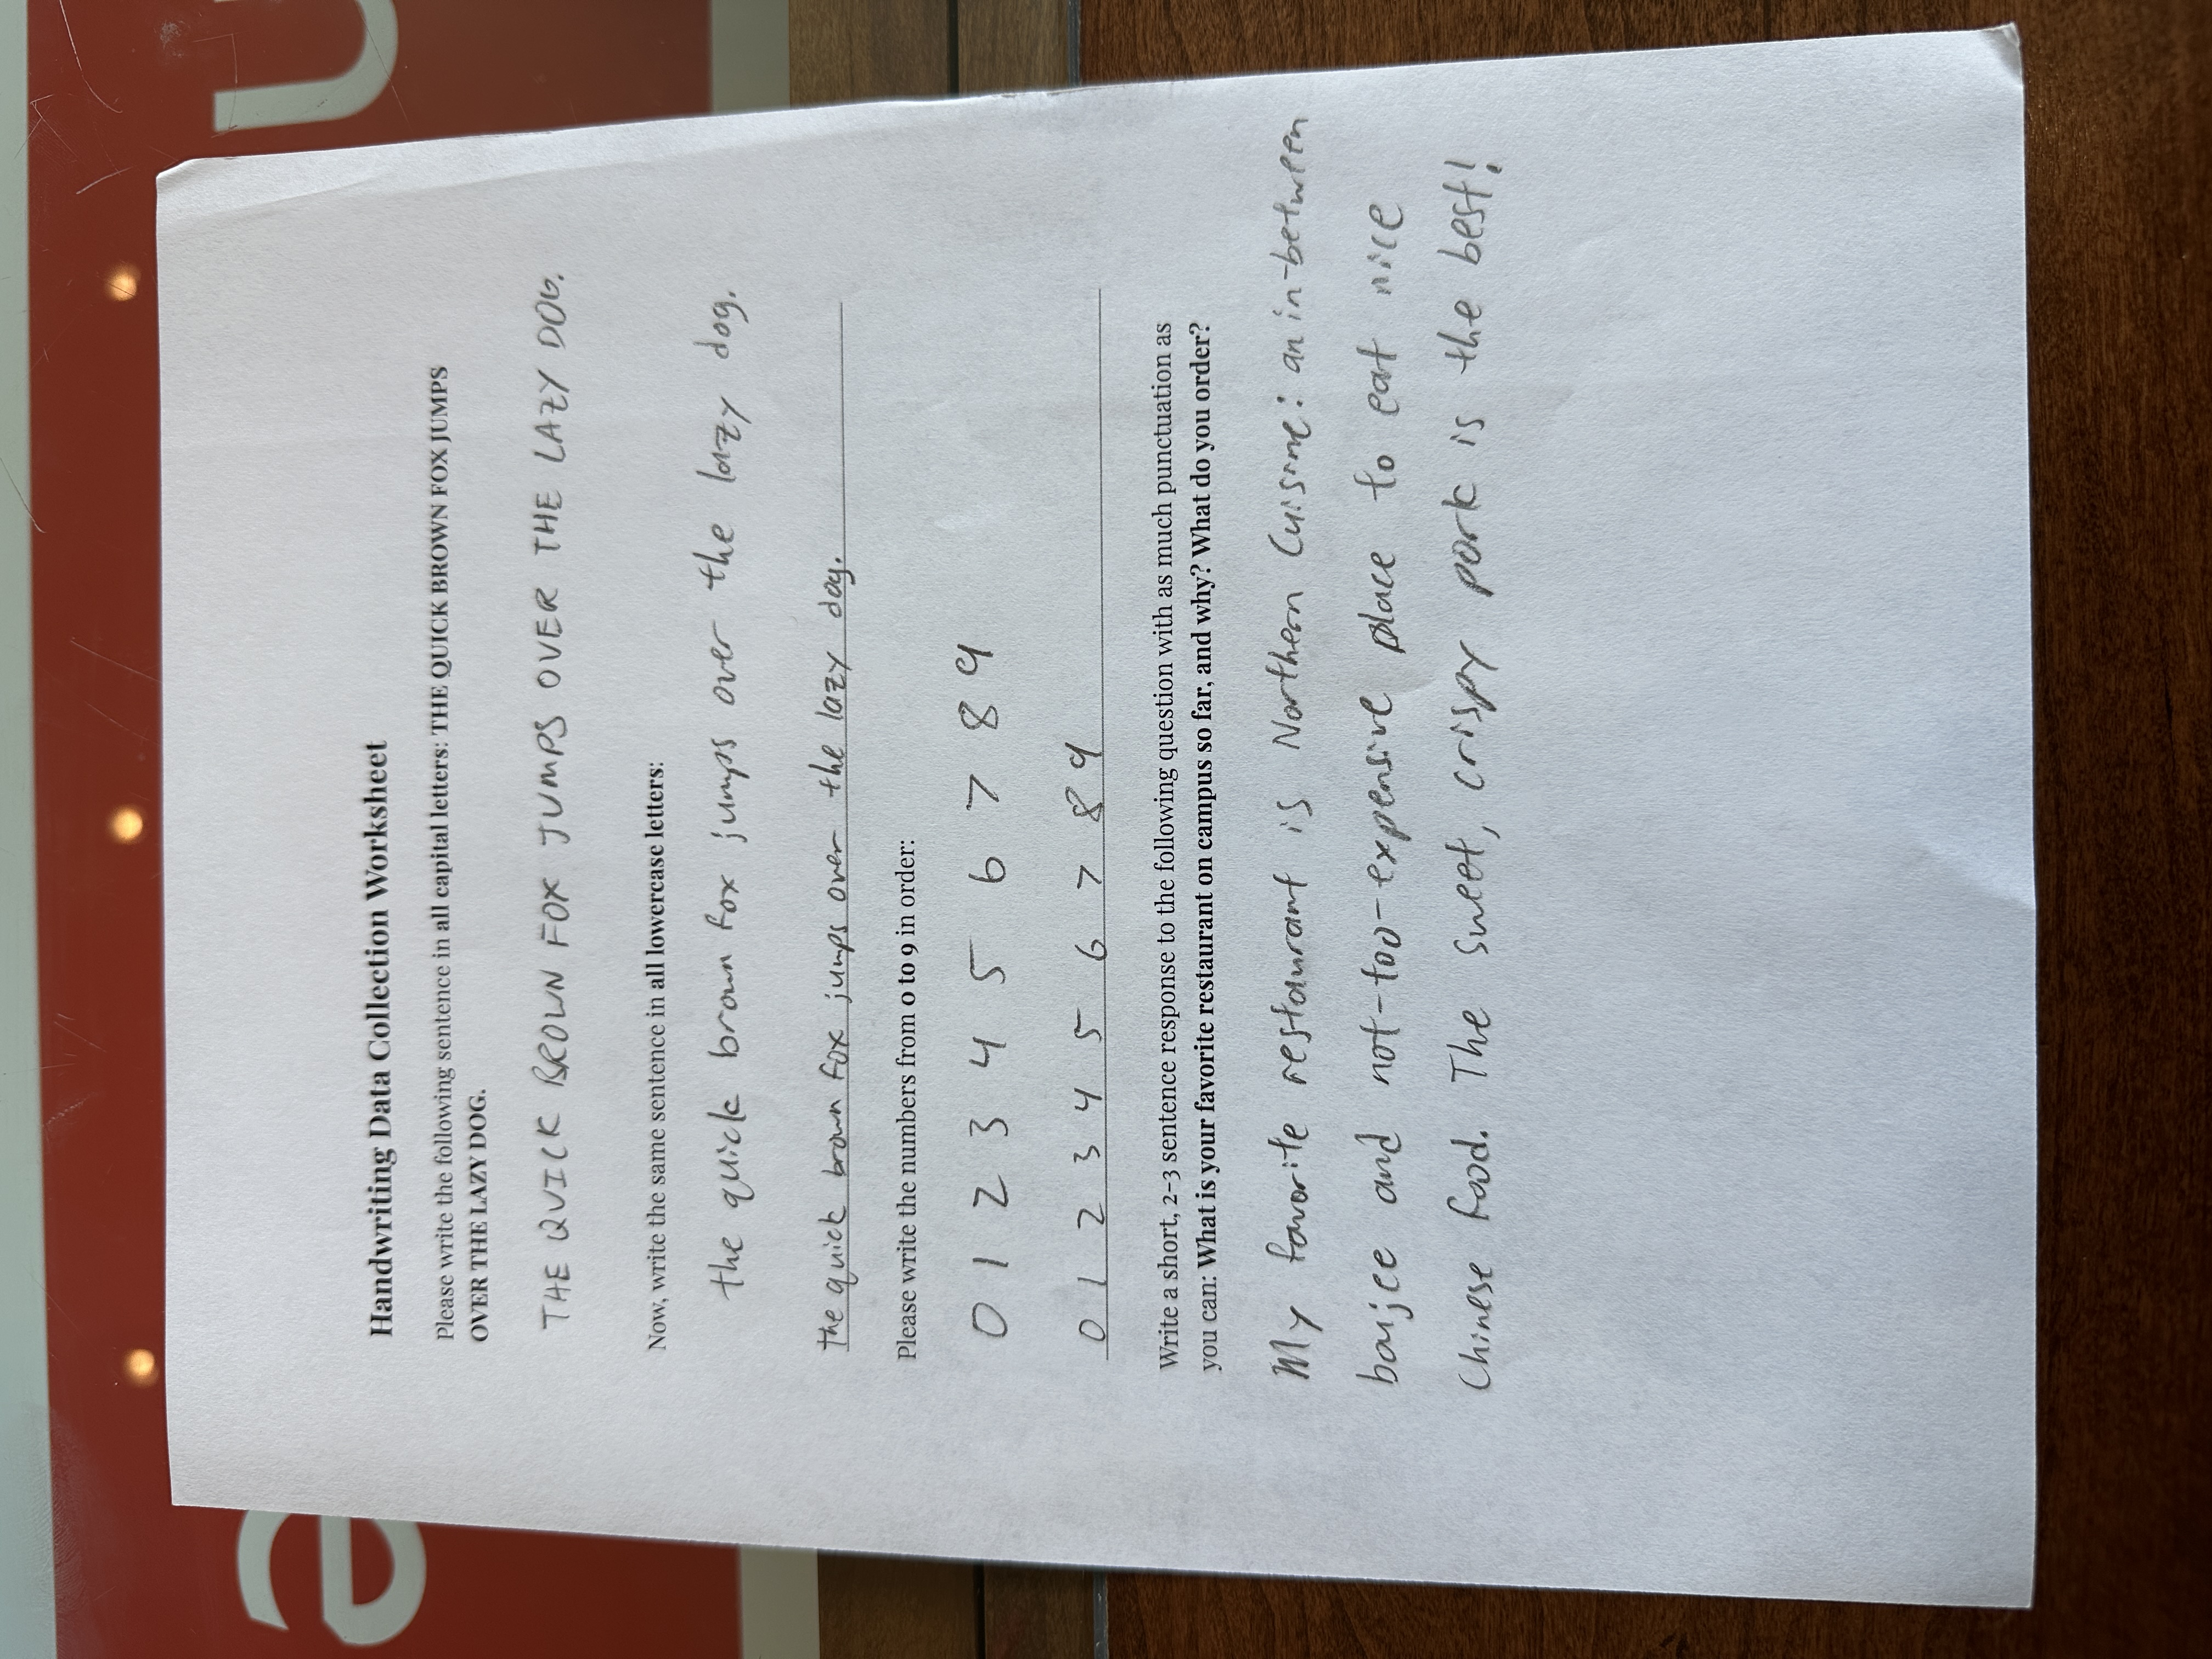 Handwriting Data Collection Worksheet
Please write the following sentence in all capital letters: THE QUICK BROWN FOX JUMPS
OVER THE LAZY DOG.
THE QUICK BROWN FOX JUMPS OVER THE LAZY DOG.
Now, write the same sentence in all lowercase letters:
the quick brown fox jumps over the lazy dog.
the quick brown fox jumps over the lazy dog.
Please write the numbers from 0 to 9 in order:
0 1 2 3 4 5 6 7 8 9
0 1 2 3 4 5 6 7 8 9
Write a short, 2-3 sentence response to the following question with as much punctuation as
you can: What is your favorite restaurant on campus so far, and why? What do you order?
My favorite restaurant is Northern Cuisine: an in-between
boujee and not-too-expensive place to eat nice
Chinese food. The sweet, crispy pork is the best!